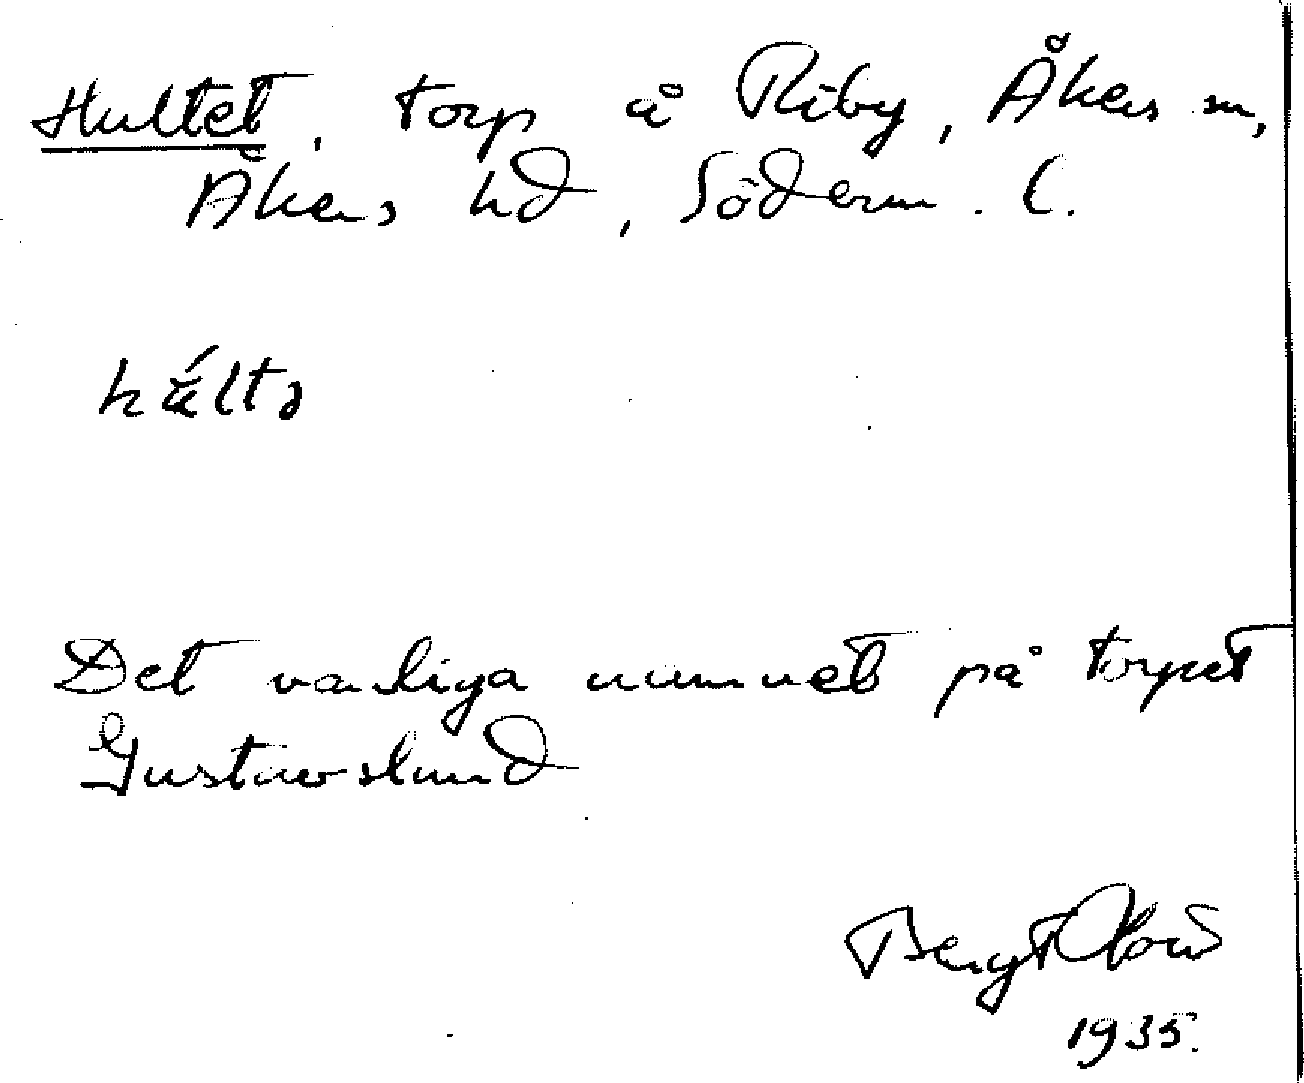 Hultet, torp å Riby, Åkers sn,
Åkers hd, Söderm. l.
Det vanliga namnet på torpet
Gustavslund
Bengt
1935.